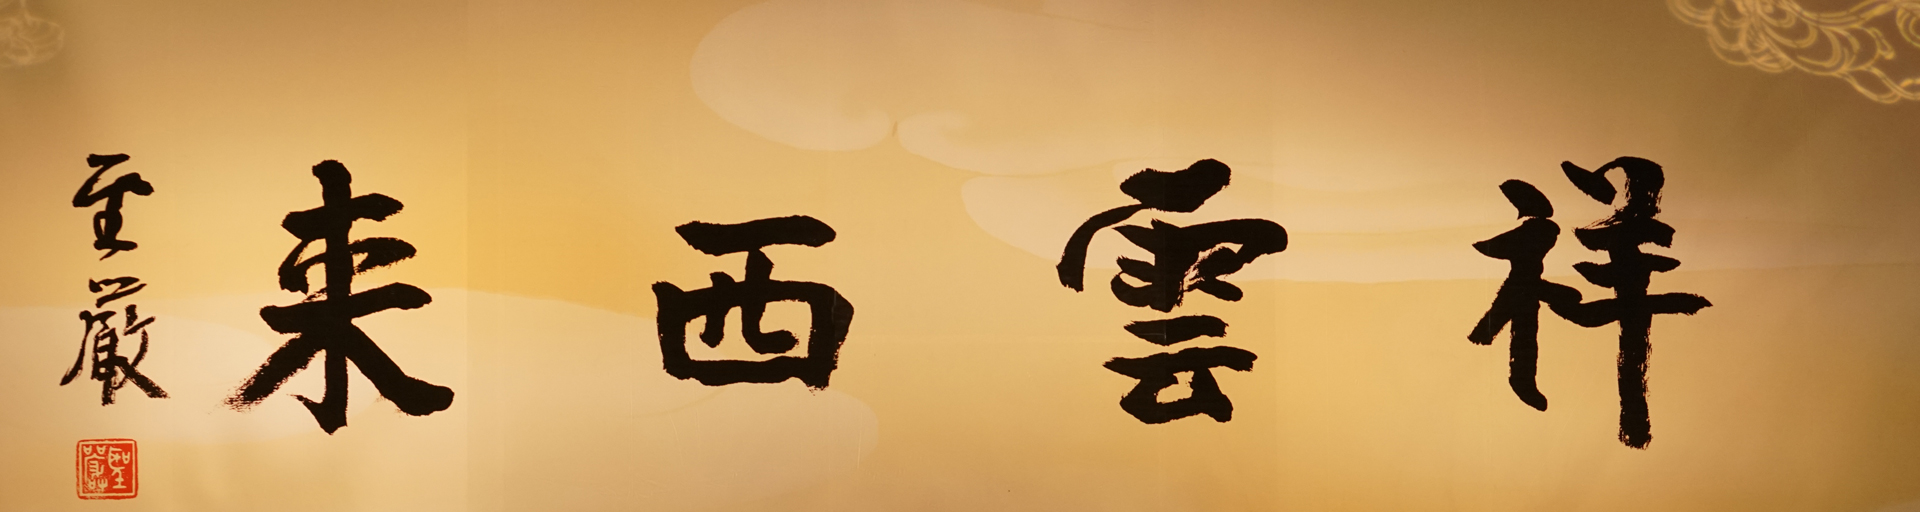 祥雲西来
聖嚴
聖嚴